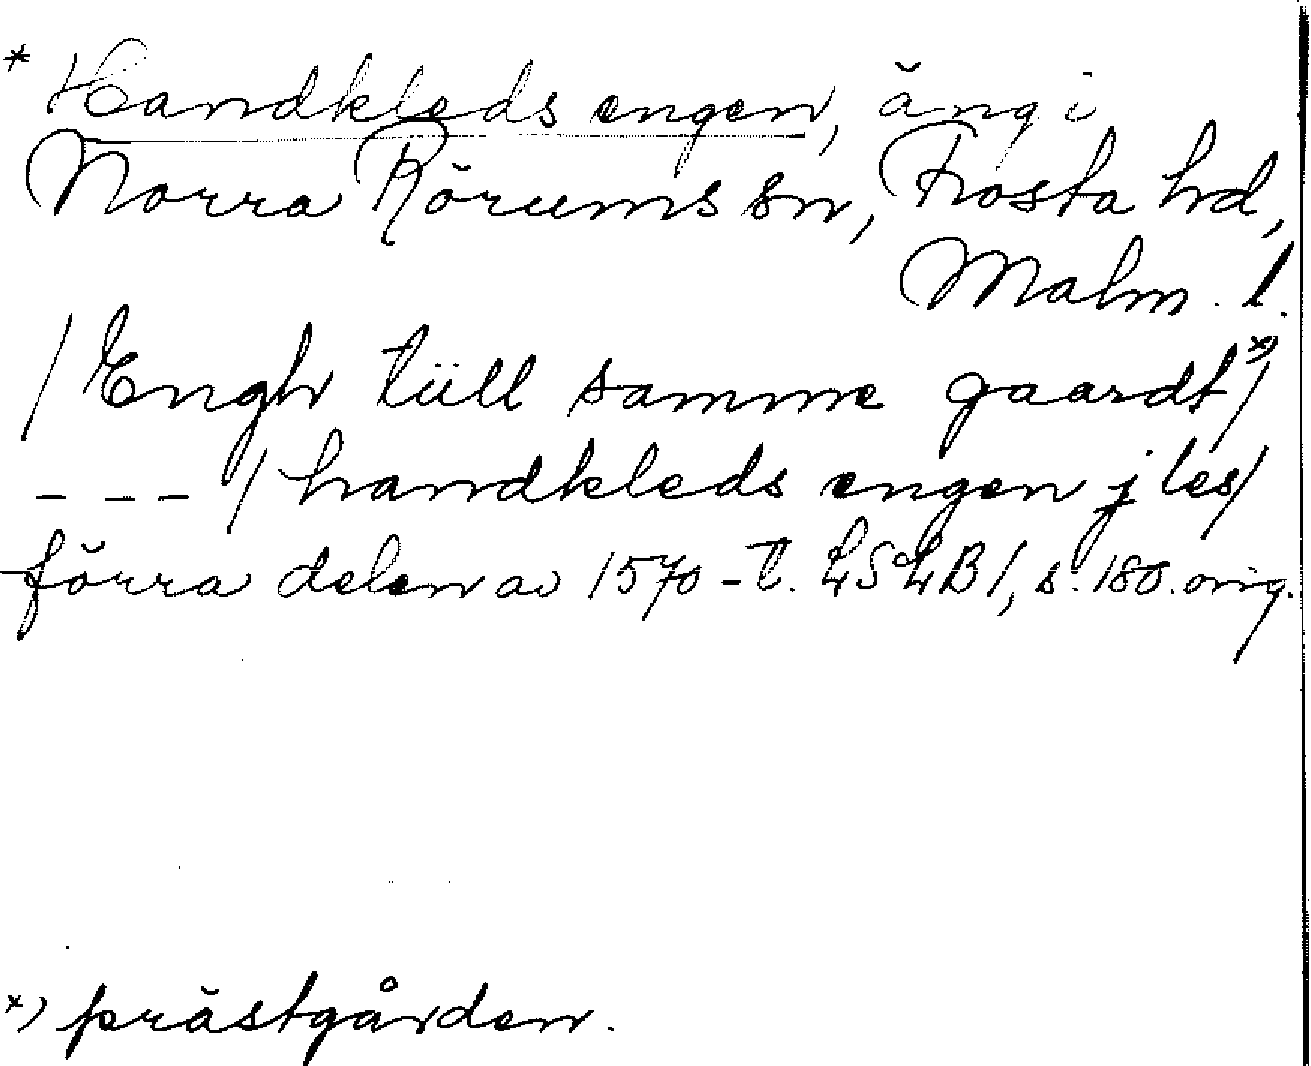 * Handkleds engen, äng i
Norra Rörums sn, Frosta hd,
Malm. l.
/ Engh tüll samme gaardt *) /
_ _ _ / handkleds engen j les /
förra delen av 1570-t. LSLB 1, s. 180. orig.
*) prästgården.